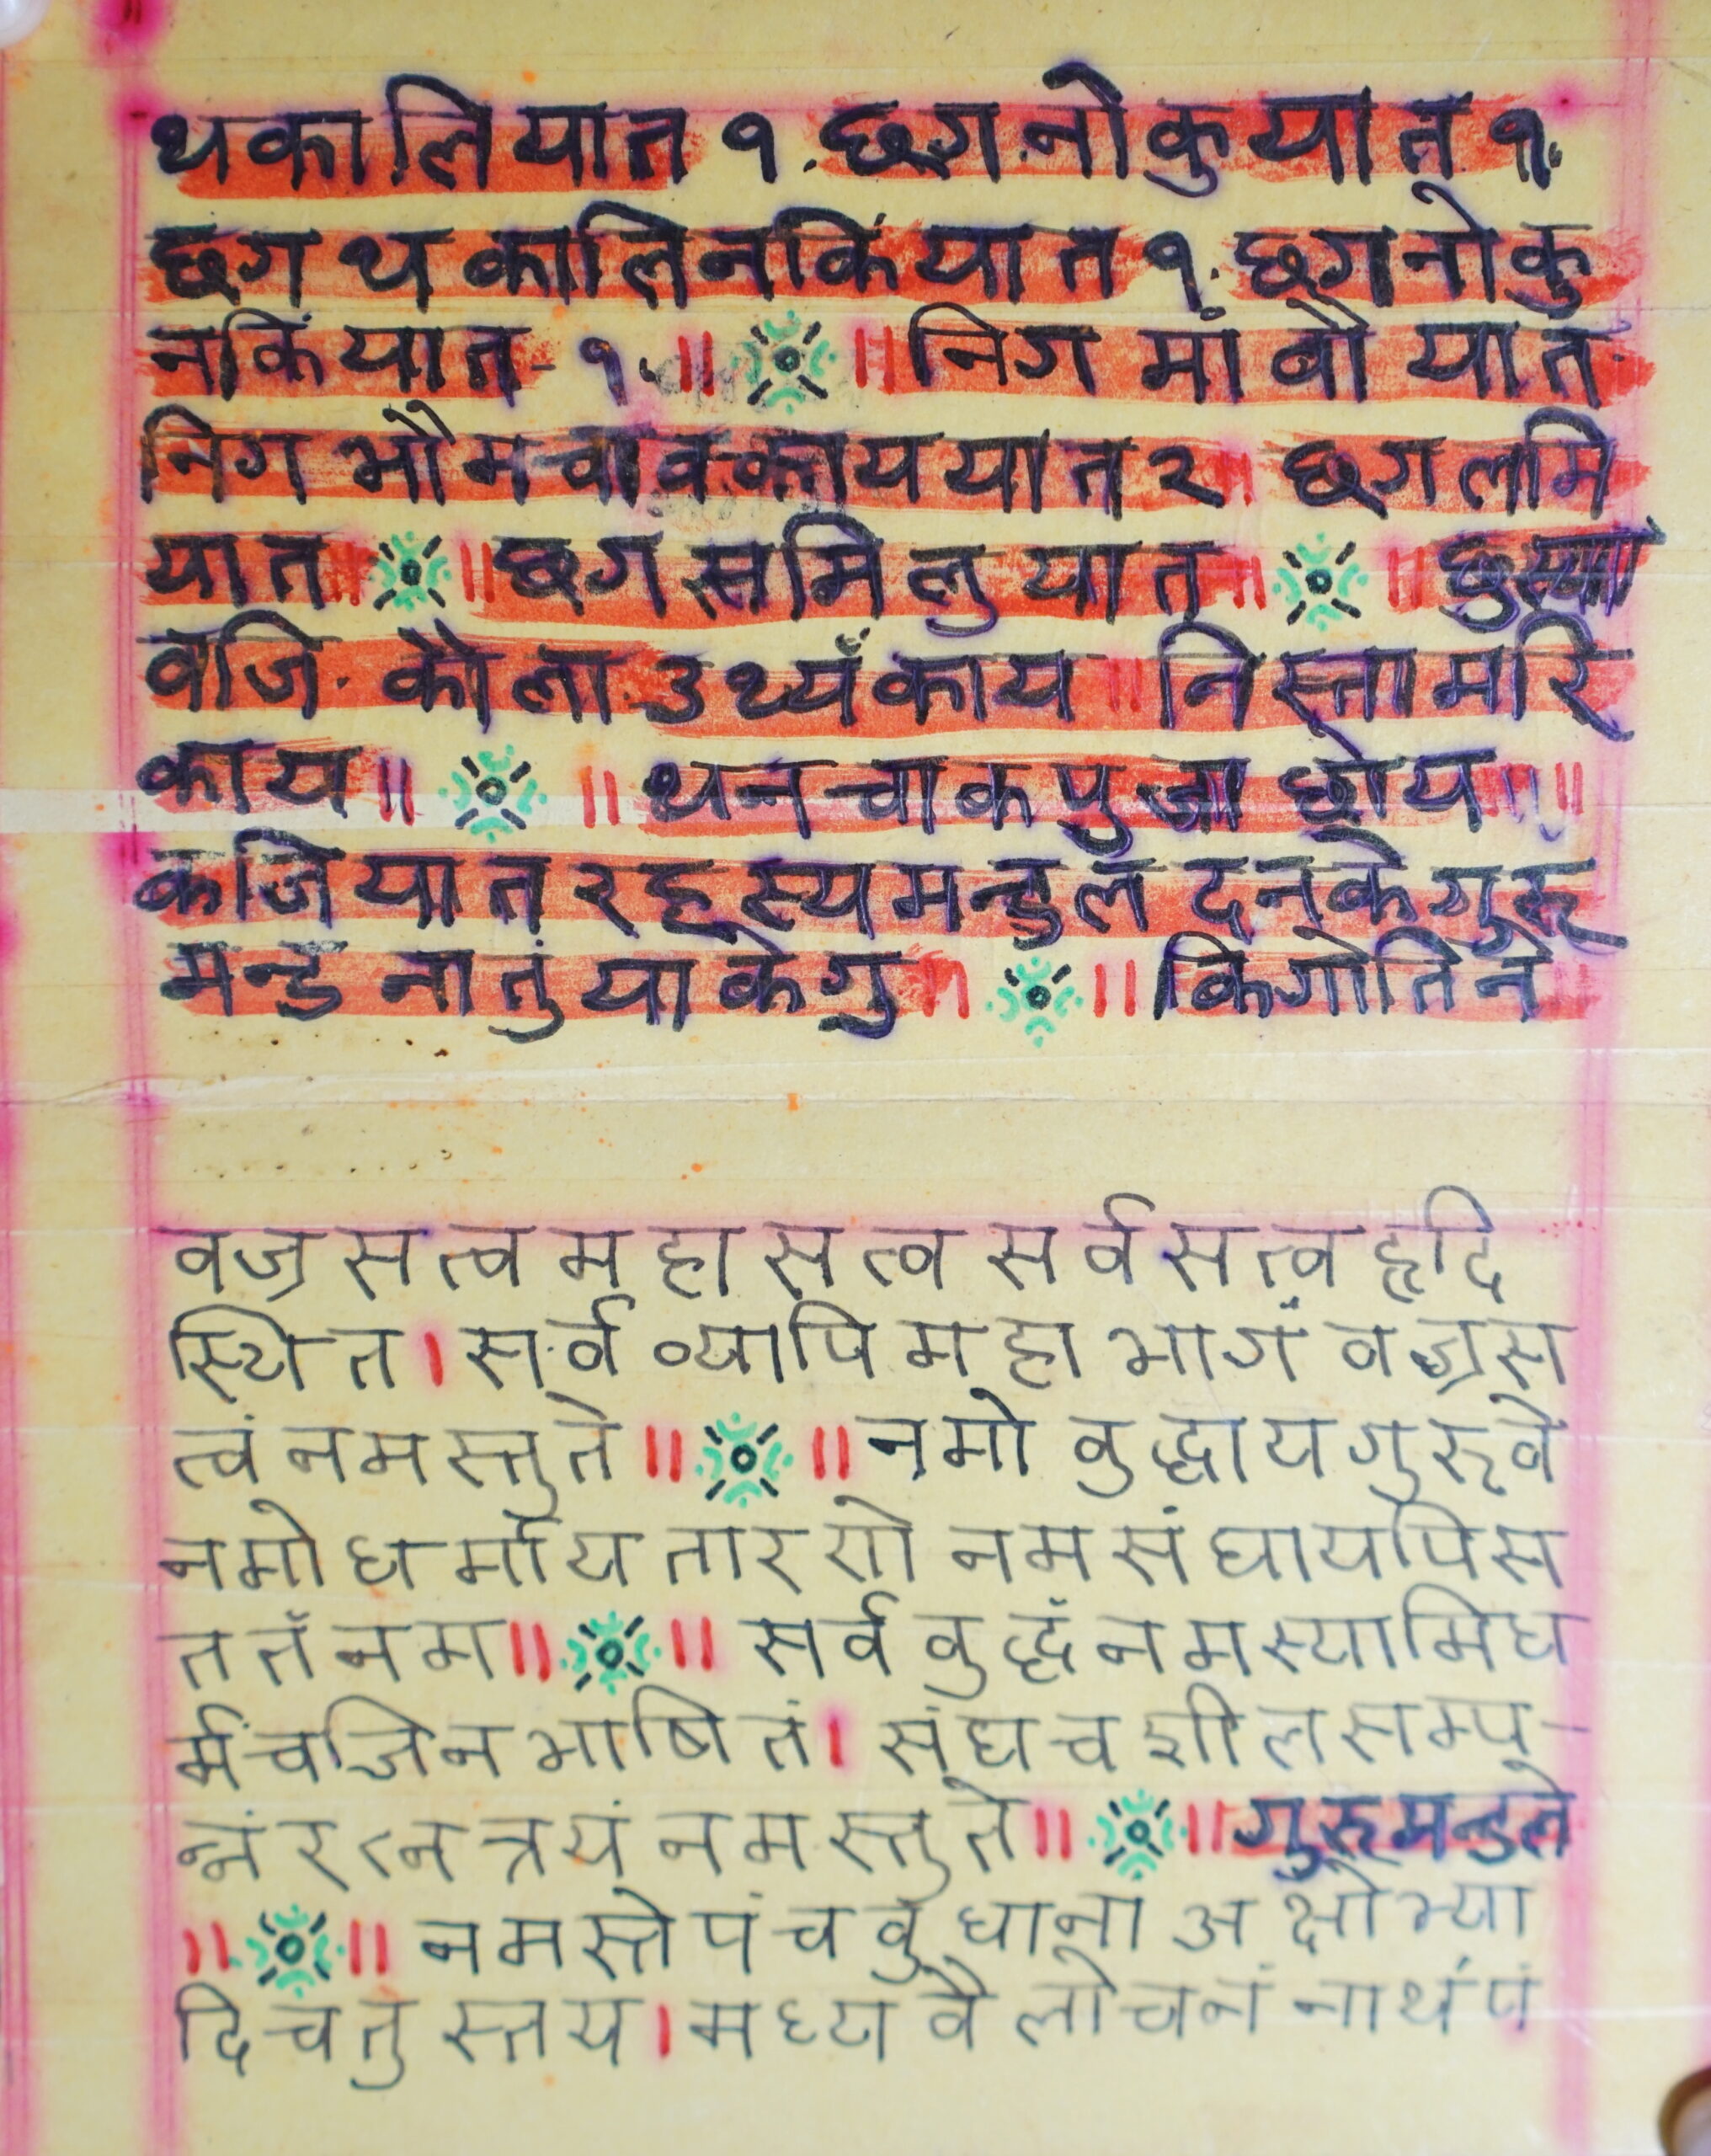 थकालियात १. छगनोकुयात १.
छग थ कालिनकिंयात १. छगनोकु
नकिंयात - १. ॥ ॥ निग मां बौ यात
निग भौमचाव काय यात २॥ छग लमि
यात ॥ ॥ छग समि लु यात ॥ ॥
वजि. कौला. उथ्यँकाय ॥ निस्तामरि
काय ॥ ॥ थन चाकपुजा छोय ॥ ॥
कजियात रहस्यमन्डल दनके गुरू
मन्ड नातुं याकेगु ॥ ॥ किगोतिन
वज्र सत्व महा सत्व सर्व सत्व हृदि
स्थित । सर्व व्यापि महा भागं वज्रस
त्वं नमस्तुते ॥ ॥ नमो वुद्धाय गुरूवे
नमो धर्माय तारणे नम संघायपिस
ततं नम ॥ ॥ सर्व वुद्धं नमस्यामिध
र्मंचजिन भाषितं । संघं च शील सम्प-
न्नं रत्न त्रयं नमस्तुते ॥ ॥ गुरूमन्डले
॥ ॥ नमस्ते पंच वुधानां अक्षोभ्या
दि चतु स्तय । मध्य वै लोचनं नाथं पं